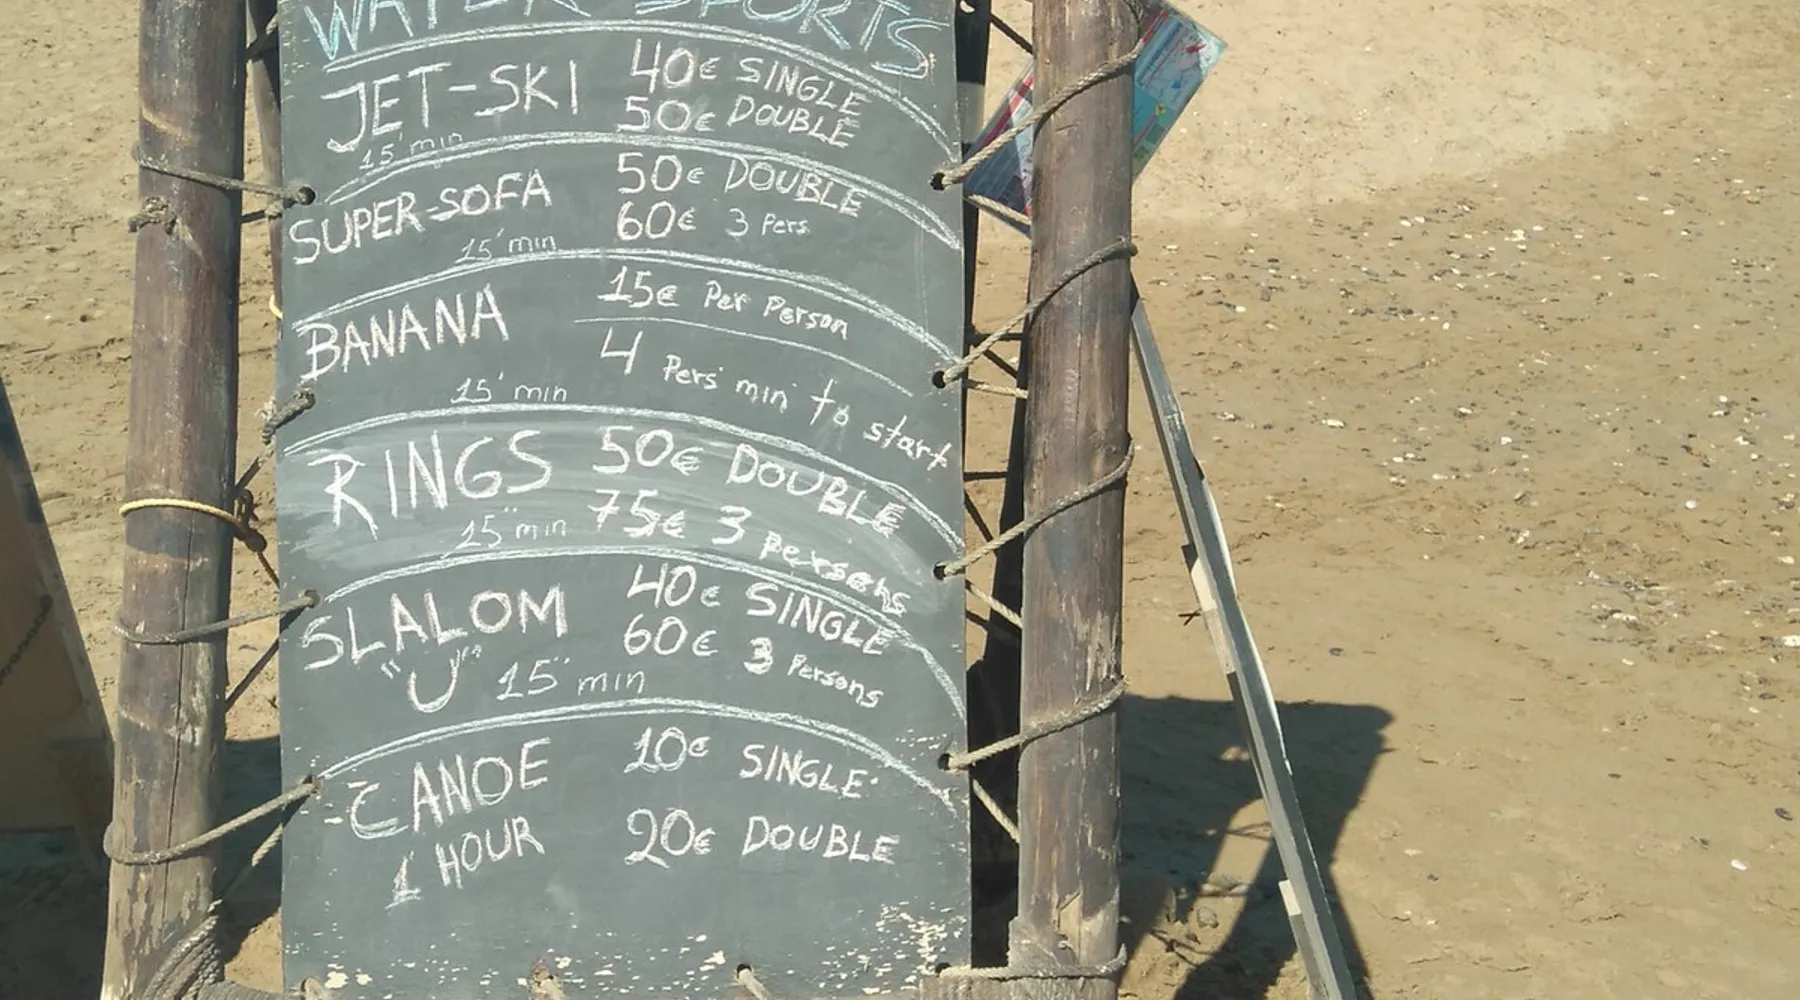 WATER SPORTS
JET-SKI 40€ SINGLE
50€ DOUBLE
15' min
SUPER-SOFA 50€ DOUBLE
60€ 3 Pers
15' min
BANANA 15€ Per Person
4 Pers min to start
15' min
RINGS 50€ DOUBLE
75€ 3 persons
15" min
SLALOM 40€ SINGLE
60€ 3 Persons
"U" 15" min
CANOE 10€ SINGLE
1 HOUR 20€ DOUBLE